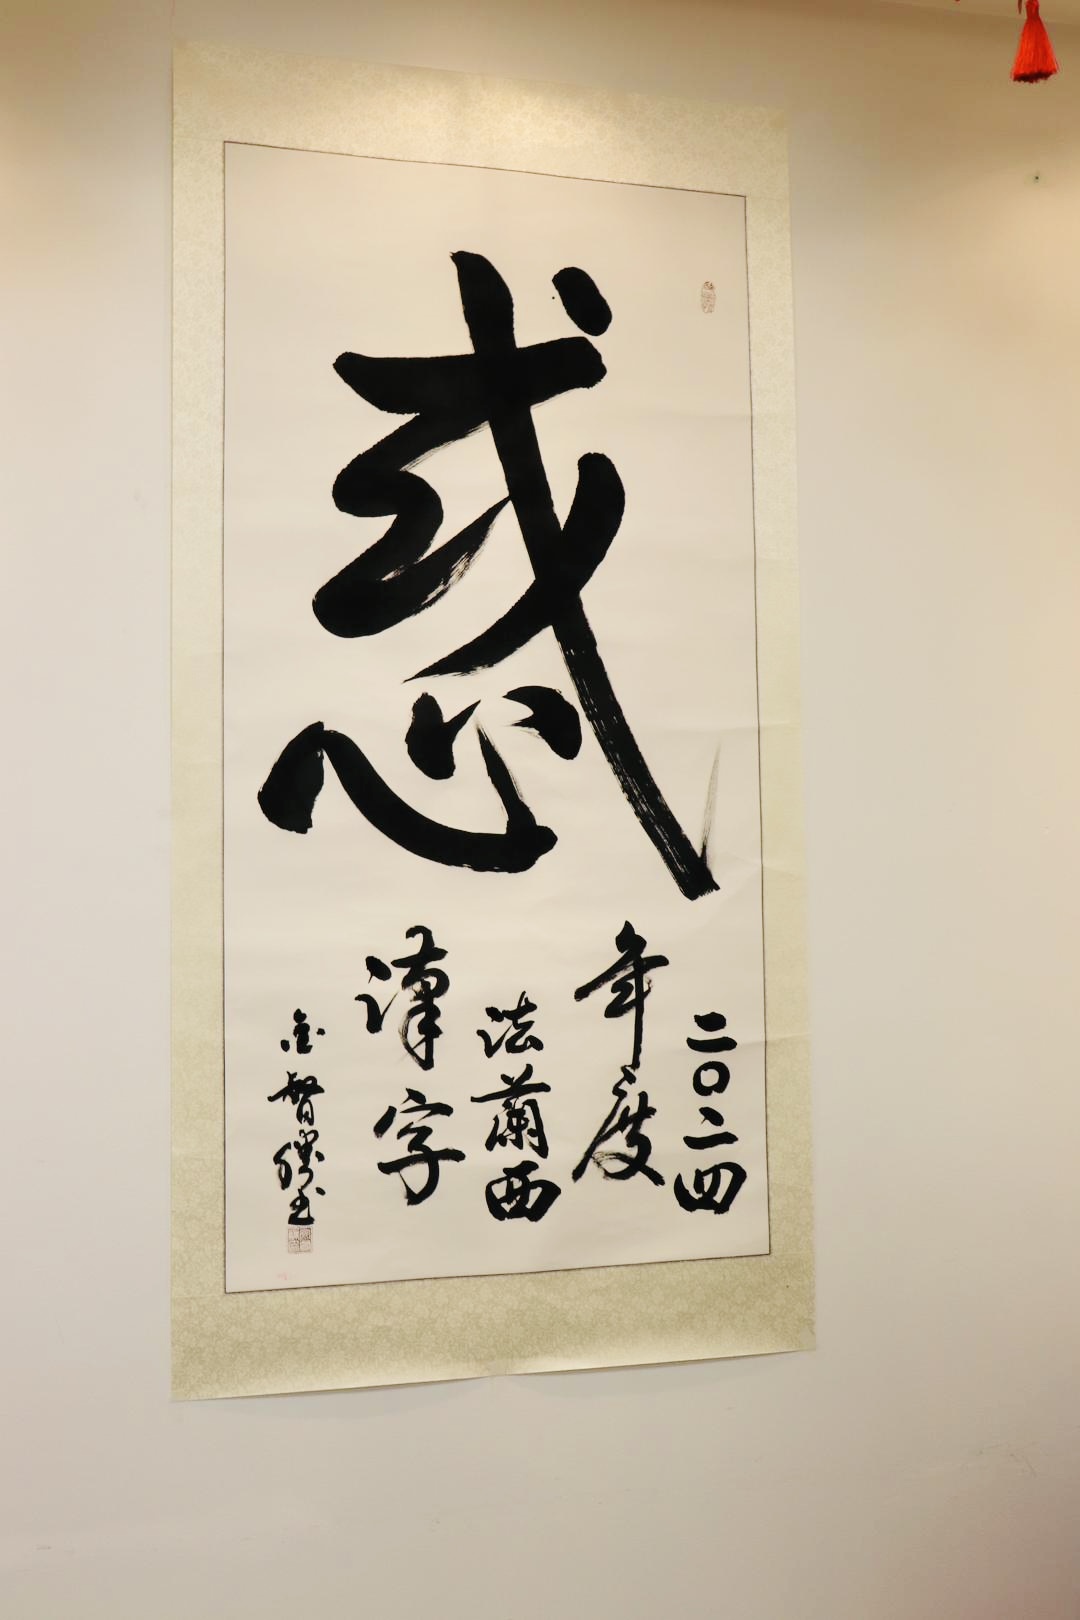 惑
二〇二四
年度
法蘭西
漢字
智勝书